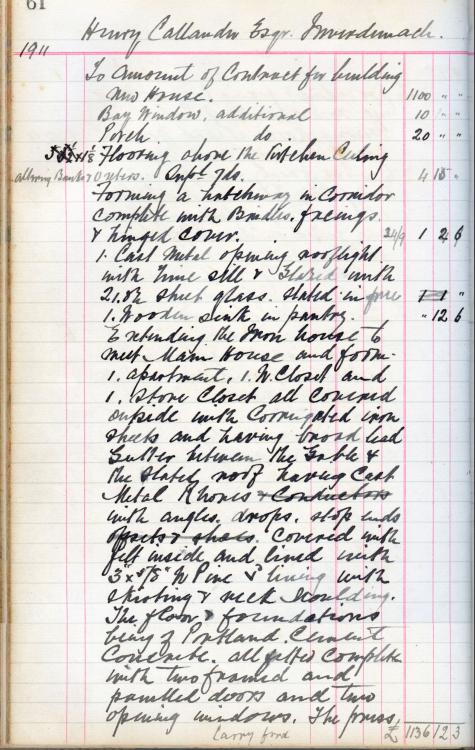 61
Henry Callander Esqr. Inverdemach.
1911
To Amount of Contract for building
New House. 1100 " "
Bay Window, additional 10 " "
Porch. do. 20 " "
Flooring above the Kitchen Ceiling
allowing Supl yds. 4 15 "
Forming a hatchway in Corridor
complete with Bridles, facings
& hinged cover. 24/9 1 2 6
1. Cast Metal opening rooflight
with Zinc sill & Glazed with
21. oz sheet glass. stated in price 1 1 "
1. Wooden sink in pantry. " 12 6
Extending the Iron house to
meet Main House and form-
1. apartment, 1. W. Closet and
1. Store Closet all covered
outside with Corrugated iron
sheets and having broad lead
Gutter between the Gable &
the slated roof having Cast
Metal Rhones & Conductors
with angles, drops, stop ends
offsets & shoes. Covered with
felt inside and lined with
3" x 5/8" W Pine V lining with
skirting & neck moulding.
The floor & foundations
being of Portland Cement
Concrete. all fitted complete
with two framed and
panelled doors and two
opening windows. The press,
Carry ford £ 1136 12 3